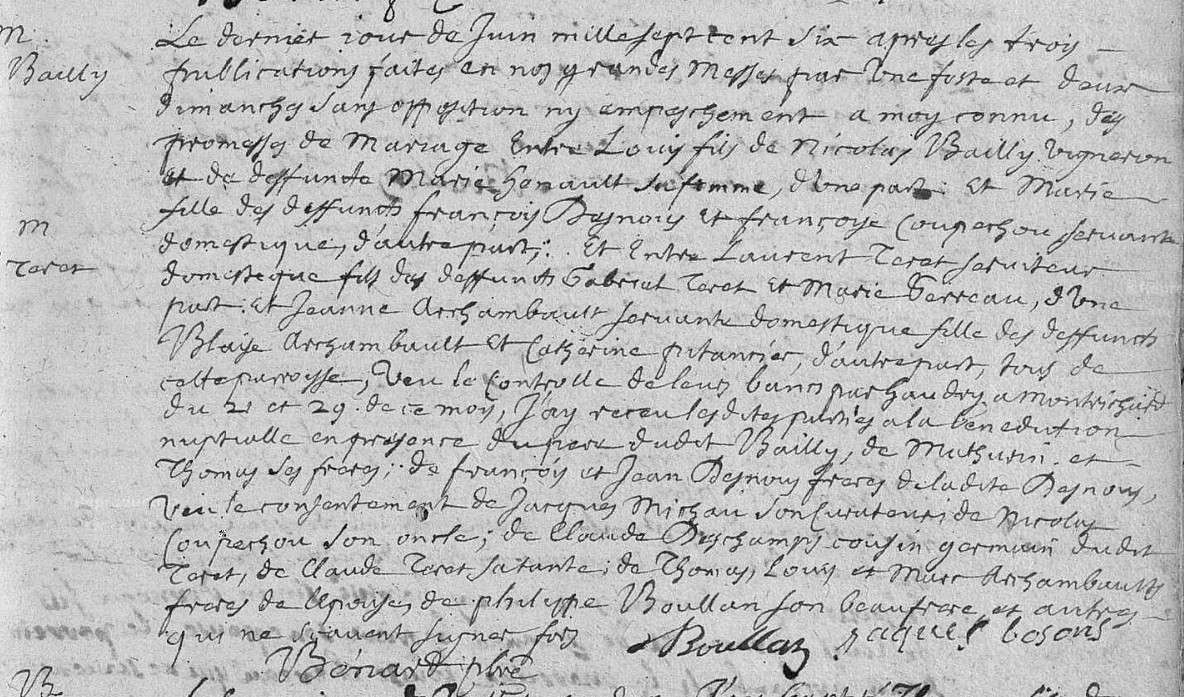 M.
Bailly
Le dernier iour de Juin mille sept cent six apres les trois
publications faites en nos grandes Messes par une feste et deux
dimanches sans opposition ny empeschement a moy connu, des
promesses de Mariage Entre Louis fils de Nicolas Bailly vigneron
et de deffuncte Marie henault sa femme, d'une part: Et Marie
fille des deffuncts françois Desnoüs et françoise Coupechou servante
M
Teret
domestique, d'autre part; Et Entre Laurent Teret serviteur
domestique fils des deffuncts Gabriel Teret et Marie Gerreau, d'Une
part: Et Jeanne Archambault servante domestique fille des deffuncts
Blaise Archambault et Catherine pitancier, d'autre part, tous de
cette paroisse, Veu le Controlle de leurs bancs par haudry a Montrichard
du 21 et 29. de ce mois, J'ay receu lesdites parties a la benediction
nuptialle en presence du pere dudit Bailly, de Mathurin et
Thomas ses freres; de françois et Jean Desnoüs freres de ladite Desnoüs,
Veu le consentement de Jacques Michau son Curateur; de Nicolas
Coupechou son oncle; de Claude Deschamps cousin germain dudit
Teret, de Claude Teret sa tante; de Thomas, Louis et Marc Archambaults
freres de l'Epouse, de philippe Boullan son beaufrere et autres
qui ne sçavent signer fors Boullan Jaques
Benard pbre